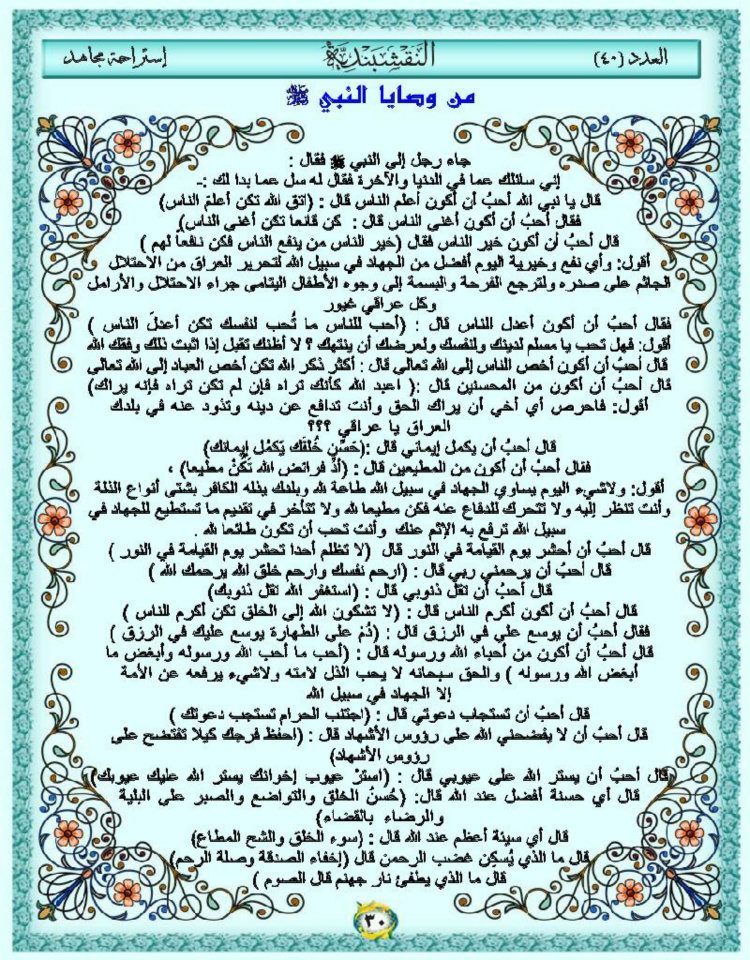 العدد (٤٠)
النقشبندية
إستراحة مجاهد
من وصايا النبي ﷺ
جاء رجل إلي النبي ﷺ فقال :
إني سائلك عما في الدنيا والآخرة فقال له سل عما بدا لك :ـ
قال يا نبي الله أحبُ أن أكون أعلم الناس قال : (اتق الله تكن أعلمَ الناس)
فقال أحبُ أن أكون أغنى الناس قال : كن قانعا تكن أغنى الناس)
قال أحبُ أن أكون خير الناس فقال (خير الناس من ينفع الناس فكن نافعاً لهم )
أقول: وأي نفع وخيرية اليوم أفضل من الجهاد في سبيل الله لتحرير العراق من الاحتلال
الجاثم على صدره ولترجع الفرحة والبسمة إلى وجوه الأطفال اليتامى جراء الاحتلال والأرامل
وكل عراقي غيور
فقال أحبُ أن أكون أعدل الناس قال : (أحب للناس ما تُحب لنفسك تكن أعدلَ الناس )
أقول: فهل تحب يا مسلم لدينك ولنفسك ولعرضك أن ينتهك ؟ لا أظنك تقبل إذا اثبت ذلك وفقك الله
قال أحبُ أن أكون أخص الناس إلى الله تعالى قال : أكثر ذكر الله تكن أخص العباد إلى الله تعالى
قال أحبُ أن أكون من المحسنين قال :( اعبد الله كأنك تراه فإن لم تكن تراه فإنه يراك)
أقول: فاحرص أي أخي أن يراك الحق وأنت تدافع عن دينه وتذود عنه في بلدك
العراق يا عراقي ؟؟؟
قال أحبُ أن يكمل إيماني قال :(حَسِّن خُلقك يَكمُل إيمانك)
فقال أحبُ أن أكون من المطيعين قال : (أدِّ فرائض الله تَكُنْ مطيعا) ،
أقول: ولاشيء اليوم يساوي الجهاد في سبيل الله طاعة لله وبلدك يذله الكافر بشتى أنواع الذلة
وأنت تنظر إليه ولا تتحرك للدفاع عنه فكن مطيعا لله ولا تتأخر في تقديم ما تستطيع للجهاد في
سبيل الله ترفع به الإثم عنك وأنت تحب أن تكون طائعا لله .
قال أحبُ أن أحشر يوم القيامة في النور قال (لا تظلم أحدا تحشر يوم القيامة في النور )
قال أحبُ أن يرحمني ربي قال : (ارحم نفسك وارحم خلق الله يرحمك الله )
قال أحبُ أن تقل ذنوبي قال : (استغفر الله تقل ذنوبك)
قال أحبُ أن أكون أكرم الناس قال : (لا تشكون الله إلى الخلق تكن أكرم الناس )
فقال أحبُ أن يوسع علي في الرزق قال : (دُمْ على الطهارة يوسع عليك في الرزق )
قال أحبُ أن أكون من أحباء الله ورسوله قال : (أحب ما أحب الله ورسوله وأبغض ما
أبغض الله ورسوله ) والحق سبحانه لا يحب الذل لامته ولاشيء يرفعه عن الأمة
إلا الجهاد في سبيل الله
قال أحبُ أن تستجاب دعوتي قال : (اجتنب الحرام تستجب دعوتك )
قال أحبُ أن لا يفضحني الله على رؤوس الأشهاد قال : (احفظ فرجك كيلا تفتضح على
رؤوس الأشهاد)
قال أحبُ أن يستر الله علي عيوبي قال : (استرْ عيوب إخوانك يستر الله عليك عيوبك)
قال أي حسنة أفضل عند الله قال: (حُسنُ الخلق والتواضع والصبر على البلية
والرضاء بالقضاء)
قال أي سيئة أعظم عند الله قال : (سوء الخلق والشح المطاع)
قال ما الذي يُسكِن غضب الرحمن قال (إخفاء الصدقة وصلة الرحم)
قال ما الذي يطفئ نار جهنم قال الصوم )
٣٠